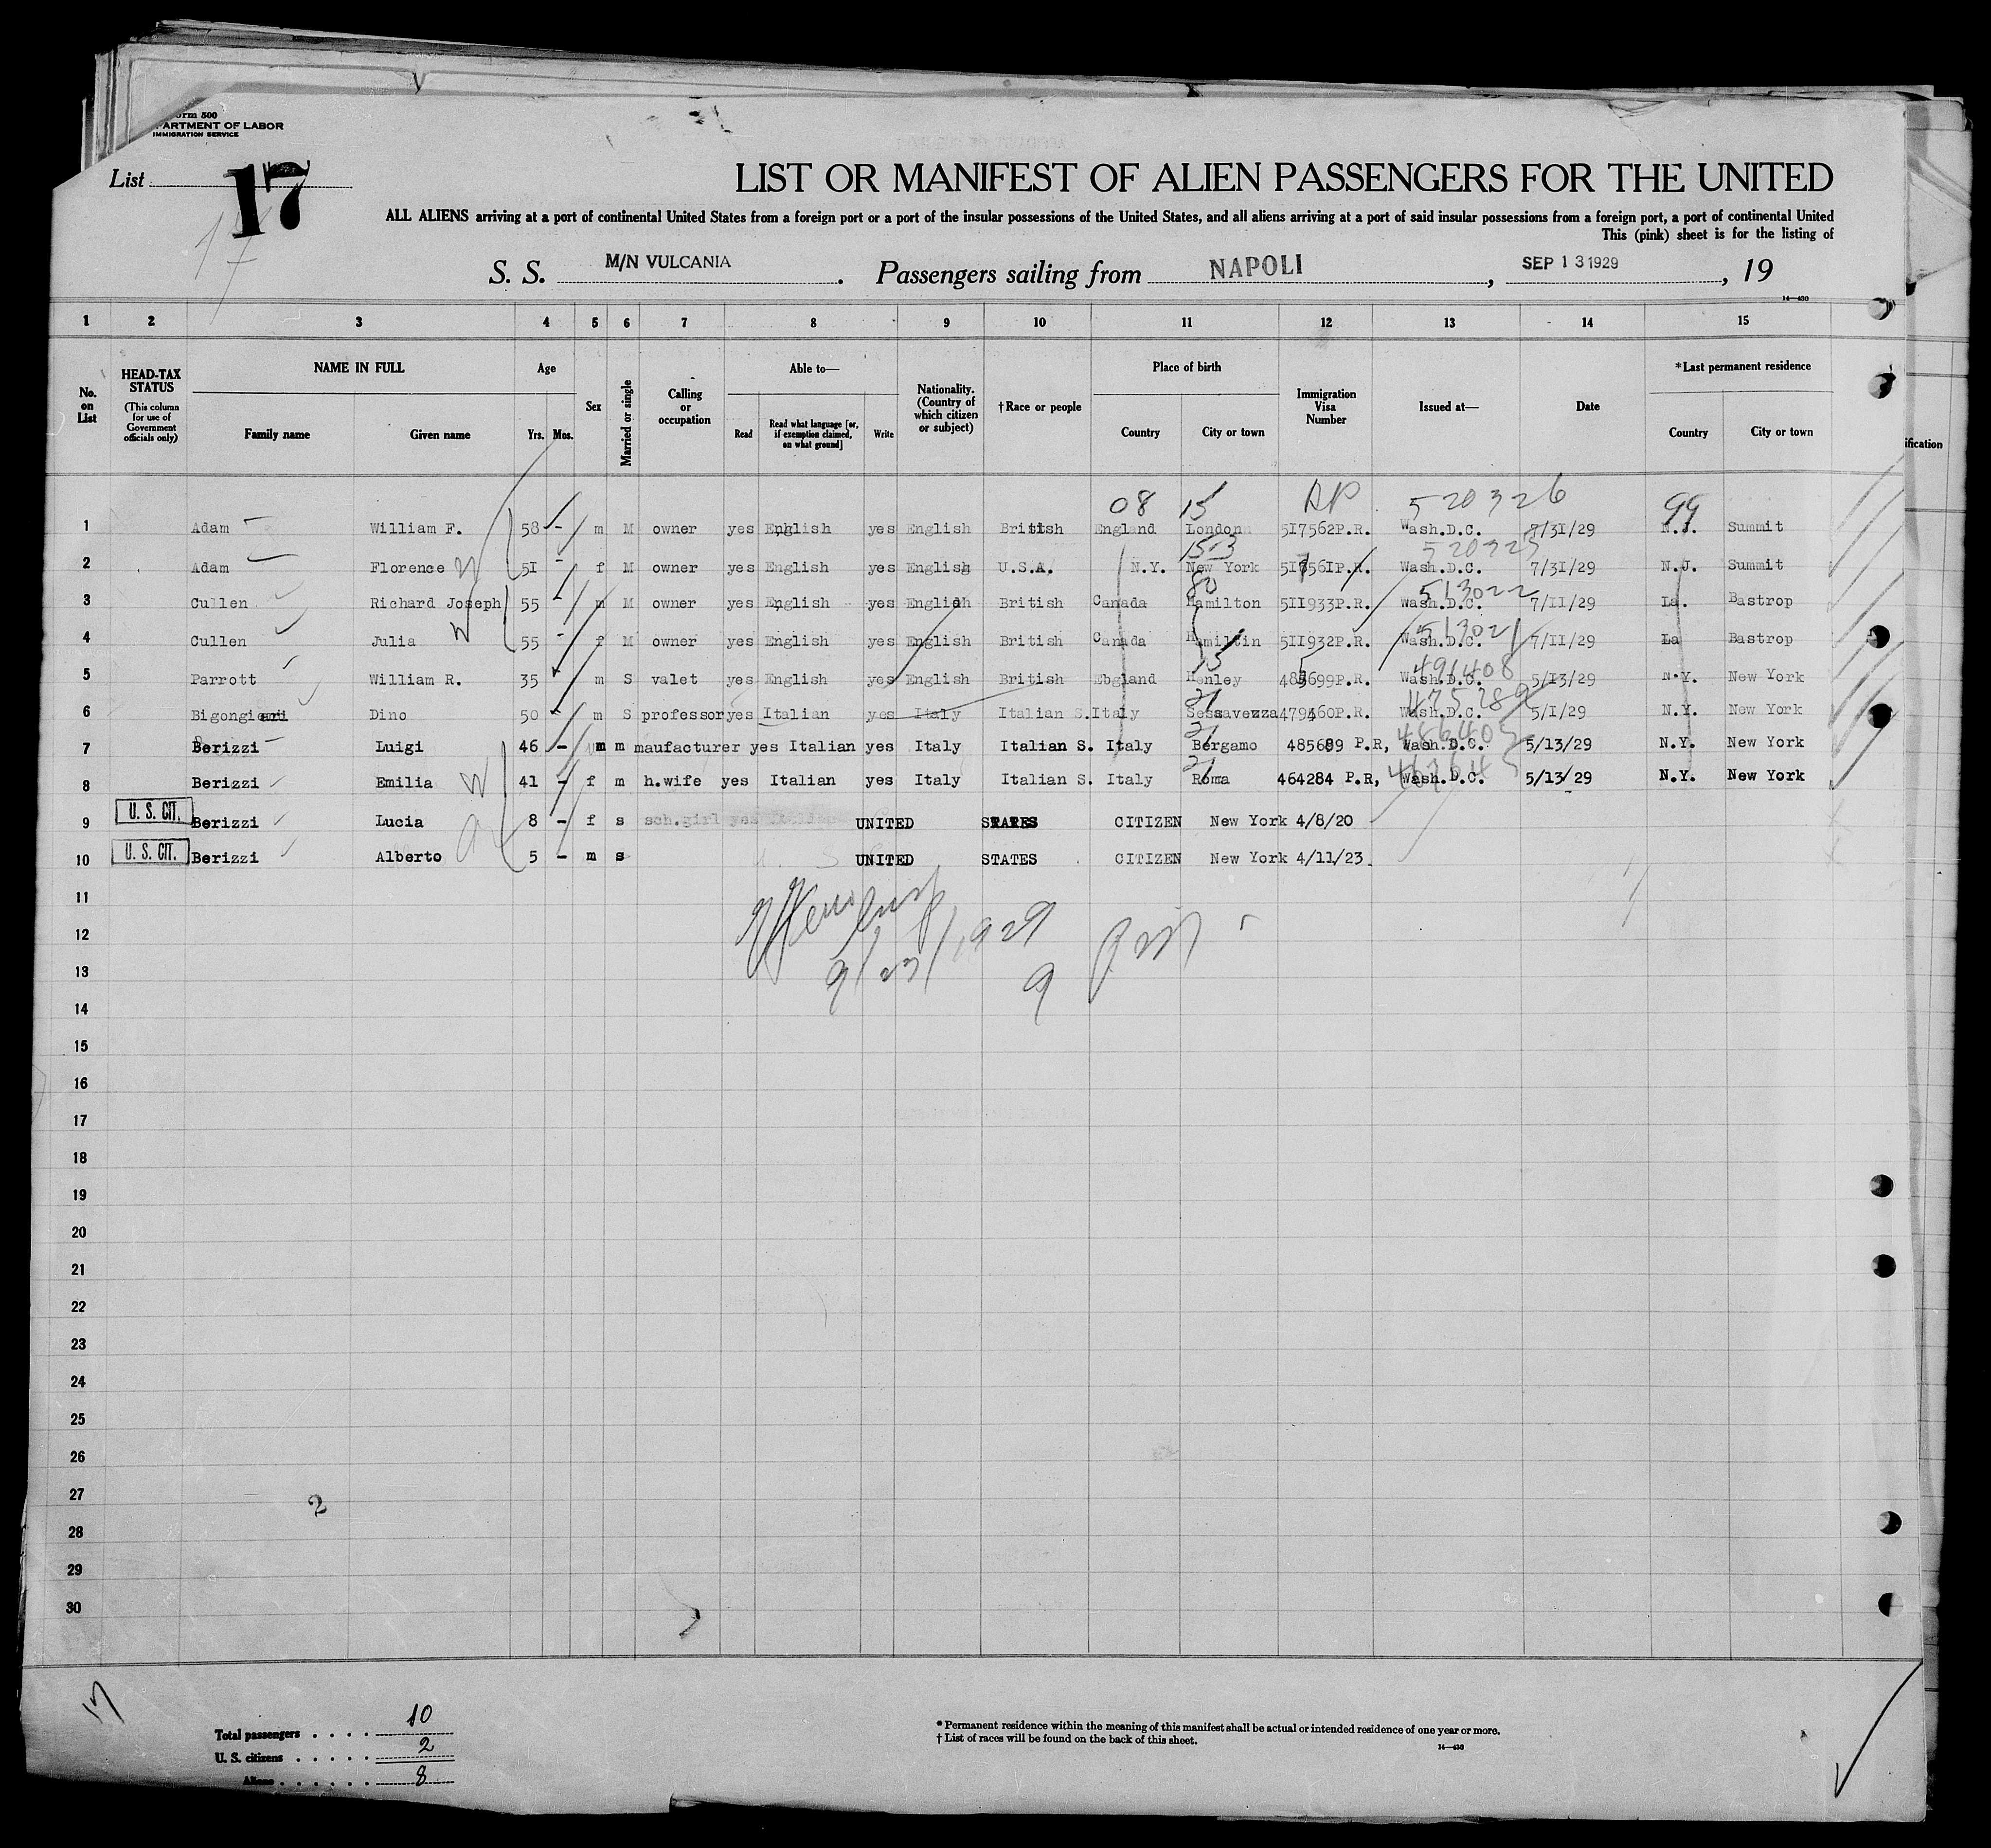 Form 500
DEPARTMENT OF LABOR
IMMIGRATION SERVICE
List 17
17
LIST OR MANIFEST OF ALIEN PASSENGERS FOR THE UNITED
ALL ALIENS arriving at a port of continental United States from a foreign port or a port of the insular possessions of the United States, and all aliens arriving at a port of said insular possessions from a foreign port, a port of continental United
This (pink) sheet is for the listing of
S. S. M/N VULCANIA. Passengers sailing from NAPOLI, SEP 13 1929, 19
14—430
1 2 3 4 5 6 7 8 9 10 11 12 13 14 15
No. on List
HEAD-TAX STATUS (This column for use of Government officials only)
NAME IN FULL Family name Given name
Age Yrs. Mos.
Sex
Married or single
Calling or occupation
Able to— Read Read what language [or, if exemption claimed, on what ground] Write
Nationality. (Country of which citizen or subject)
†Race or people
Place of birth Country City or town
Immigration Visa Number
Issued at—
Date
*Last permanent residence Country City or town
ification
08 15 520326 99
1 Adam William F. 58 - m M owner yes English yes English British England London 517562P.R. Wash.D.C. 7/31/29 N.J. Summit
153
2 Adam Florence 51 - f M owner yes English yes English U.S.A. N.Y. New York 517561P.R. Wash.D.C. 7/31/29 N.J. Summit
80 513022
3 Cullen Richard Joseph 55 - m M owner yes English yes English British Canada Hamilton 511933P.R. Wash.D.C. 7/11/29 La. Bastrop
513021
4 Cullen Julia W 55 - f M owner yes English yes English British Canada Hamiltin 511932P.R. Wash.D.C. 7/11/29 La Bastrop
15 491408
5 Parrott William R. 35 m S valet yes English yes English British Ebgland Henley 485699P.R. Wash.D.C. 5/13/29 N.Y. New York
21
6 Bigongiari Dino 50 m S professor yes Italian yes Italy Italian S. Italy Sessavezza 479460P.R. Wash.D.C. 5/1/29 N.Y. New York
21
7 Berizzi Luigi 46 - m m maufacturer yes Italian yes Italy Italian S. Italy Bergamo 485689 P.R, Wash.D.C. 5/13/29 N.Y. New York
21
8 Berizzi Emilia W 41 - f m h.wife yes Italian yes Italy Italian S. Italy Roma 464284 P.R, Wash.D.C. 5/13/29 N.Y. New York
U. S. CIT.
9 Berizzi Lucia 8 - f s sch.girl yes Italian UNITED STATES CITIZEN New York 4/8/20
U. S. CIT.
10 Berizzi Alberto 5 - m s UNITED STATES CITIZEN New York 4/11/23
11
12
9/23/1929
13
9
14
15
16
17
18
19
20
21
22
23
24
25
26
27
2
28
29
30
17
Total passengers . . . . 10
U. S. citizens . . . . . 2
Aliens . . . . . . 8
* Permanent residence within the meaning of this manifest shall be actual or intended residence of one year or more.
† List of races will be found on the back of this sheet.
14—430